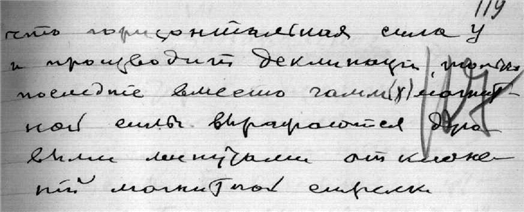 119
что горизонтальная сила У
и производит деклинацию, только
последние вместо гамм(γ) магнит-
ной силы выражаются дуго
выми минутами отклоне
ний магнитной стрелки